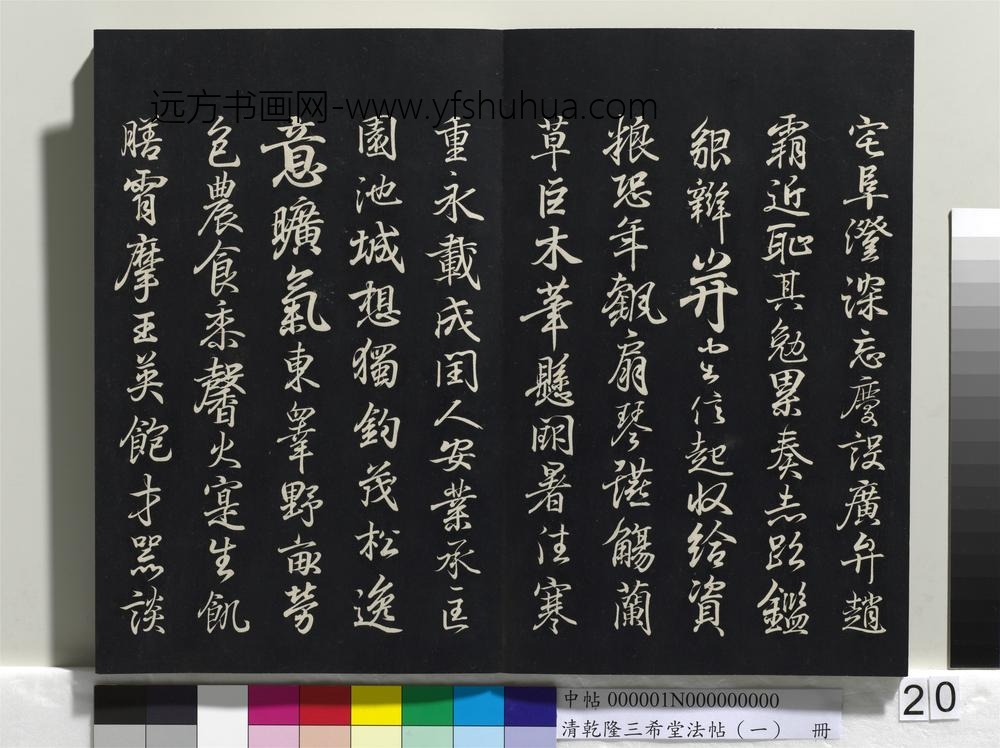 宅阜澄深忘慶設廣弁趙
霸近恥其勉累奏志鑑
貌辯并信起收給資
粮恐年觀扇琴讌觴蘭
草巨木華懸朗暑往寒
重永載成閏人安業承匡
園池城想獨鈞茂松逸
意曠氣東野畝勞
包農食黍馨火寔生飢
膳霄摩王英飽才器談
远方书画网-www.yfshuhua.com
中帖 000001N000000000
清乾隆三希堂法帖（一） 冊
20